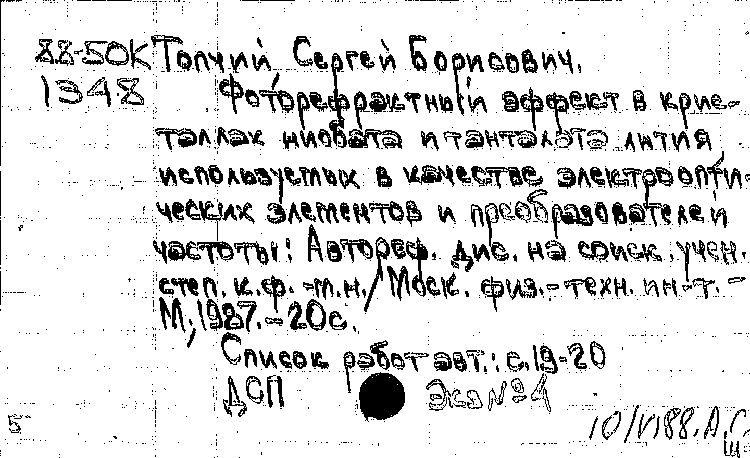 88-50К Топчий, Сергей Борисович.
1348 Фоторефрактный эффект в крис-
таллах ниобата и танталата лития,
используемых в качестве электроопти-
ческих элементов и преобразователей
частоты: Автореф. дис. на соиск. учен.
степ. к.ф.-м.н./ Моск. физ.-техн. ин-т. -
М., 1987. - 20с.
Список работ авт.: с.19-20
ДСП Экз № 4
5 10/VI 88. А.С.